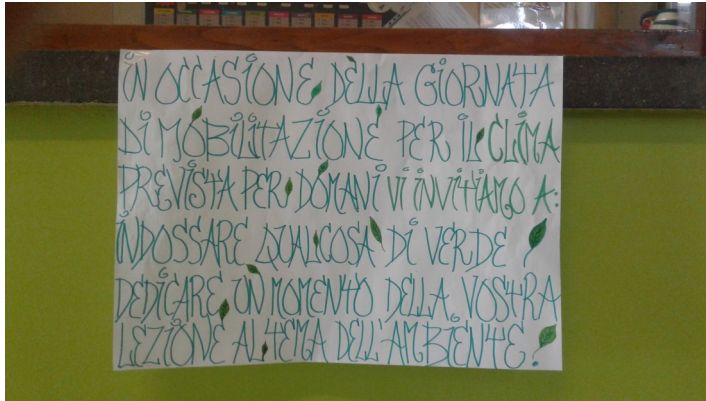 IN OCCASIONE DELLA GIORNATA
DI MOBILITAZIONE PER IL CLIMA
PREVISTA PER DOMANI VI INVITIAMO A:
INDOSSARE QUALCOSA DI VERDE
DEDICARE UN MOMENTO DELLA VOSTRA
LEZIONE AL TEMA DELL'AMBIENTE.